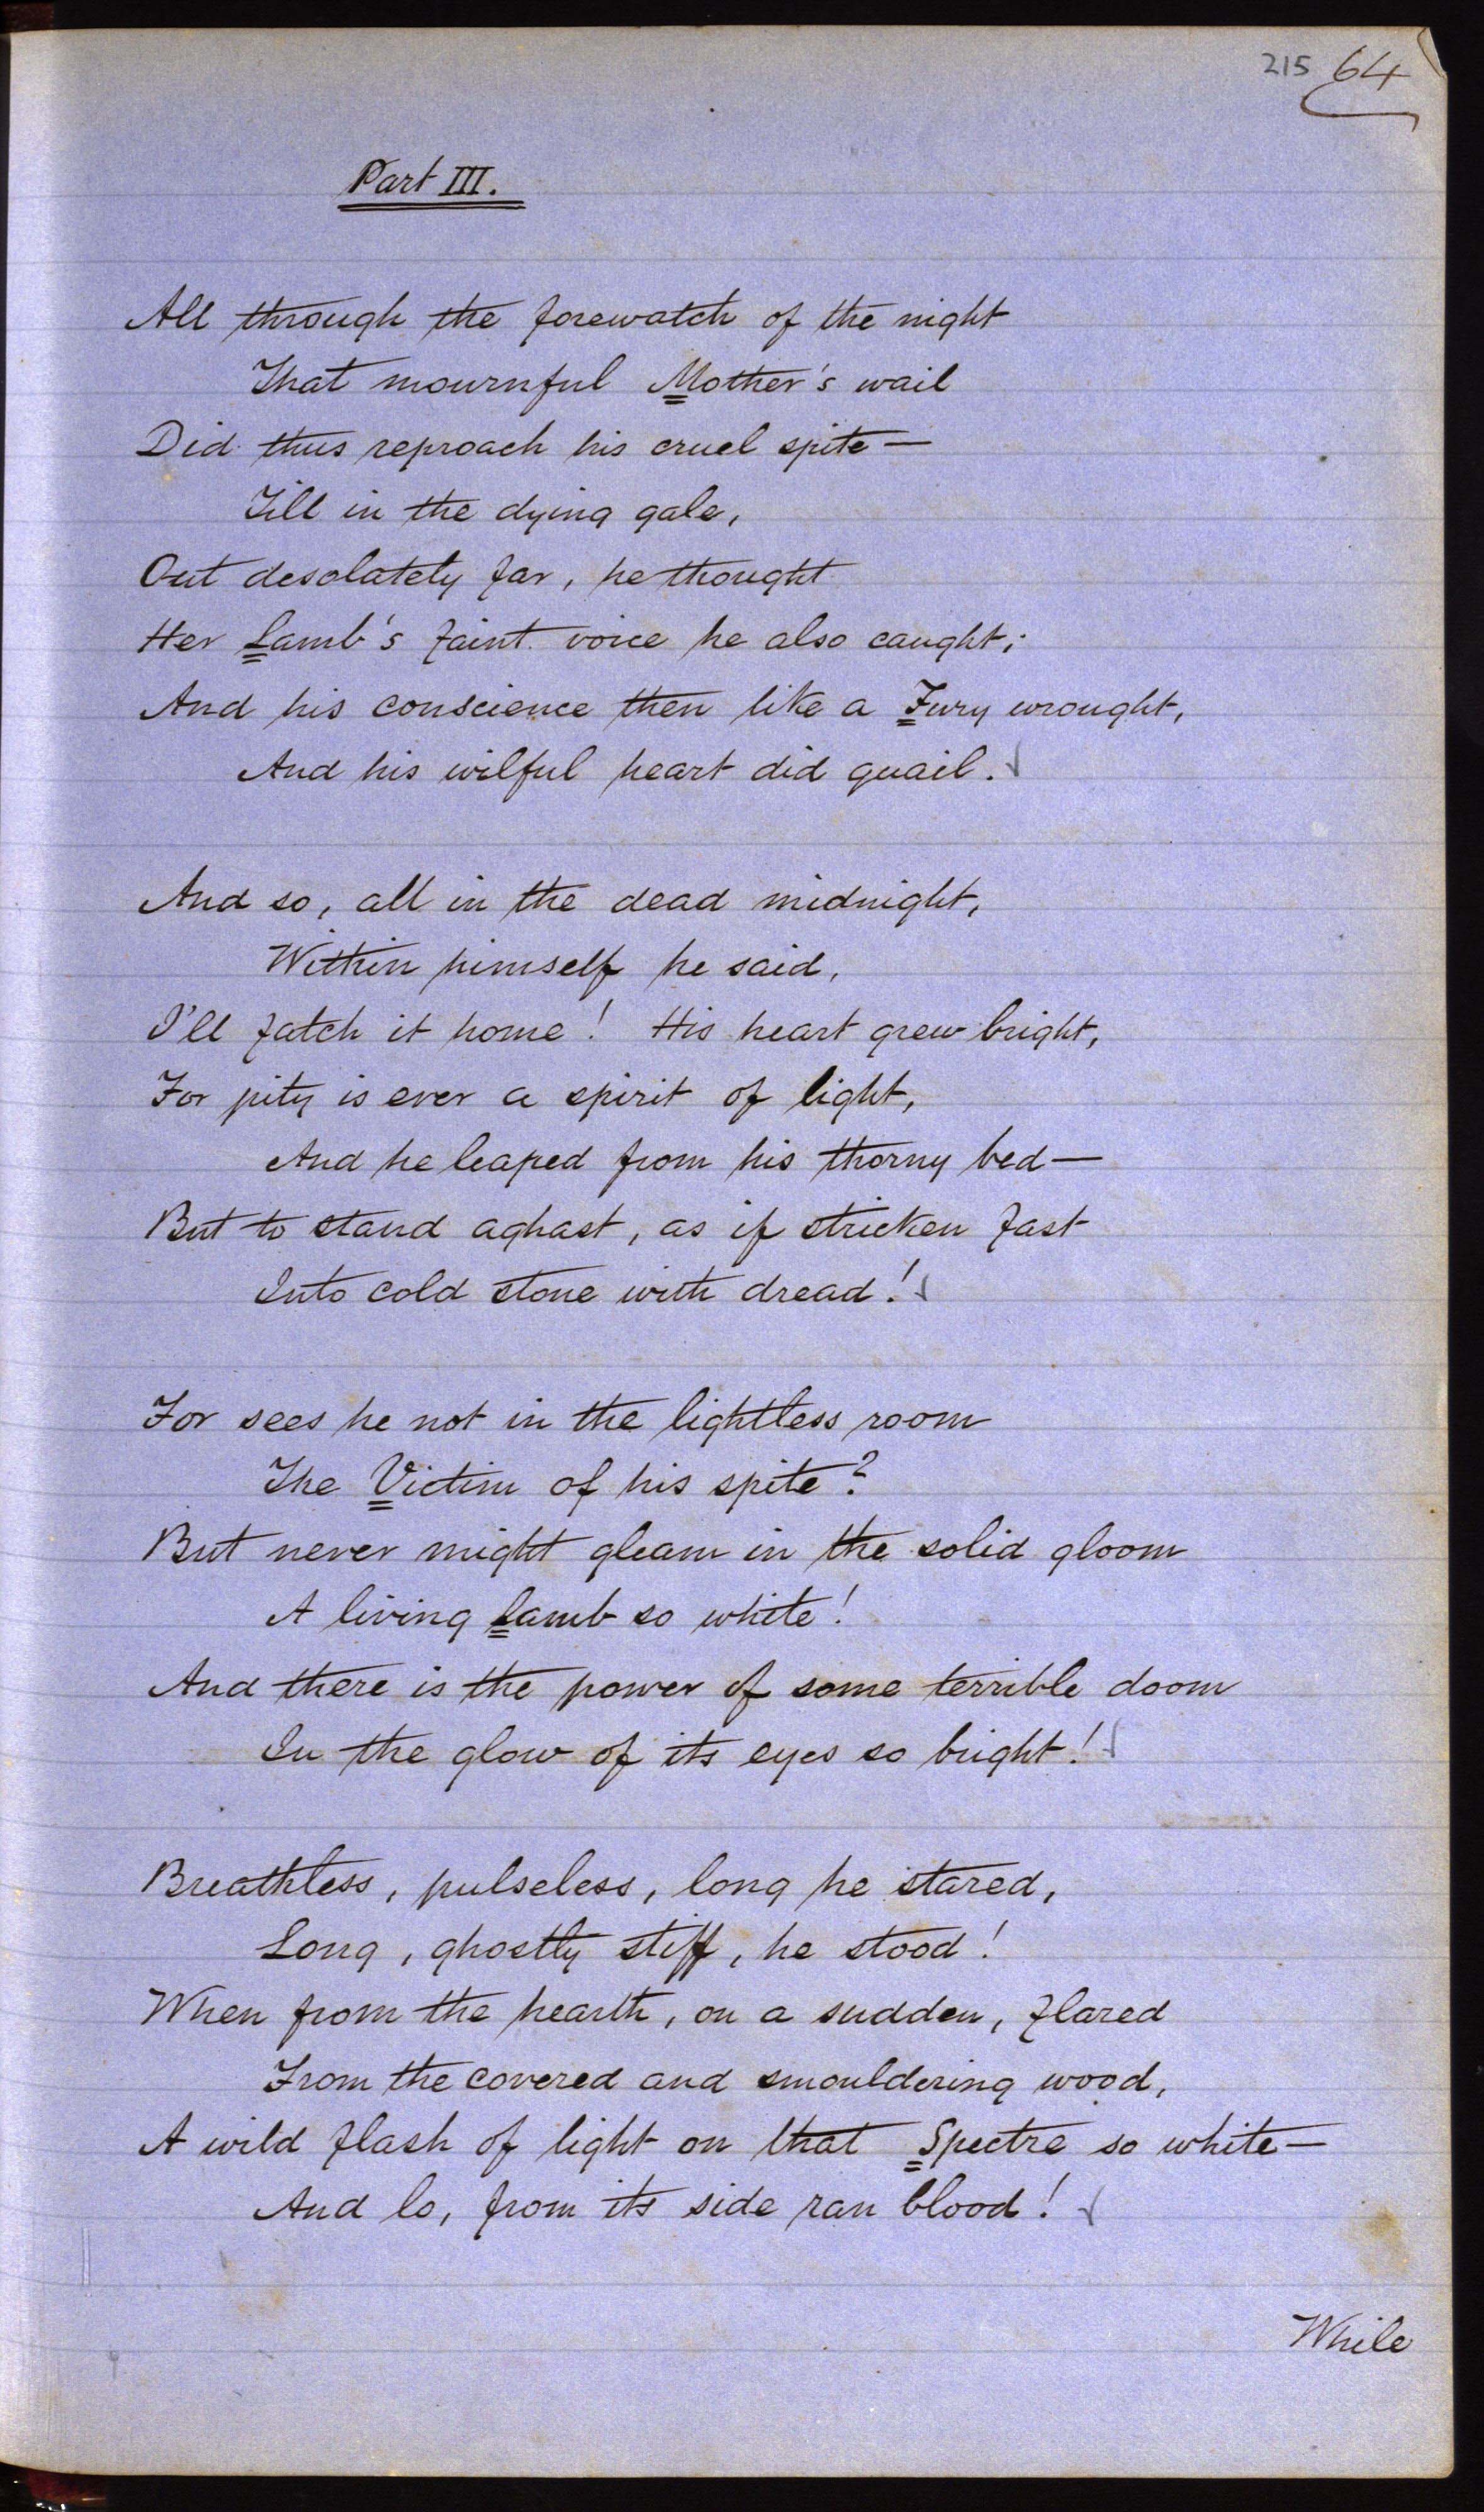 215 64
Part III.
All through the forewatch of the night
That mournful Mother's wail
Did thus reproach his cruel spite—
Till in the dying gale,
Out desolately far, he thought
Her Lamb's faint voice he also caught;
And his conscience then like a Fury wrought,
And his wilful heart did quail.
And so, all in the dead midnight,
Within himself he said,
I'll fatch it home! His heart grew bright,
For pity is ever a spirit of light,
And he leaped from his thorny bed—
But to stand aghast, as if stricken fast
Into cold stone with dread!
For sees he not in the lightless room
The Victim of his spite?
But never might gleam in the solid gloom
A living Lamb so white!
And there is the power of some terrible doom
In the glow of its eyes so bright!
Breathless, pulseless, long he stared,
Long, ghostly stiff, he stood!
When from the hearth, on a sudden, flared
From the covered and smouldering wood,
A wild flash of light on that Spectre so white—
And lo, from its side ran blood!
While